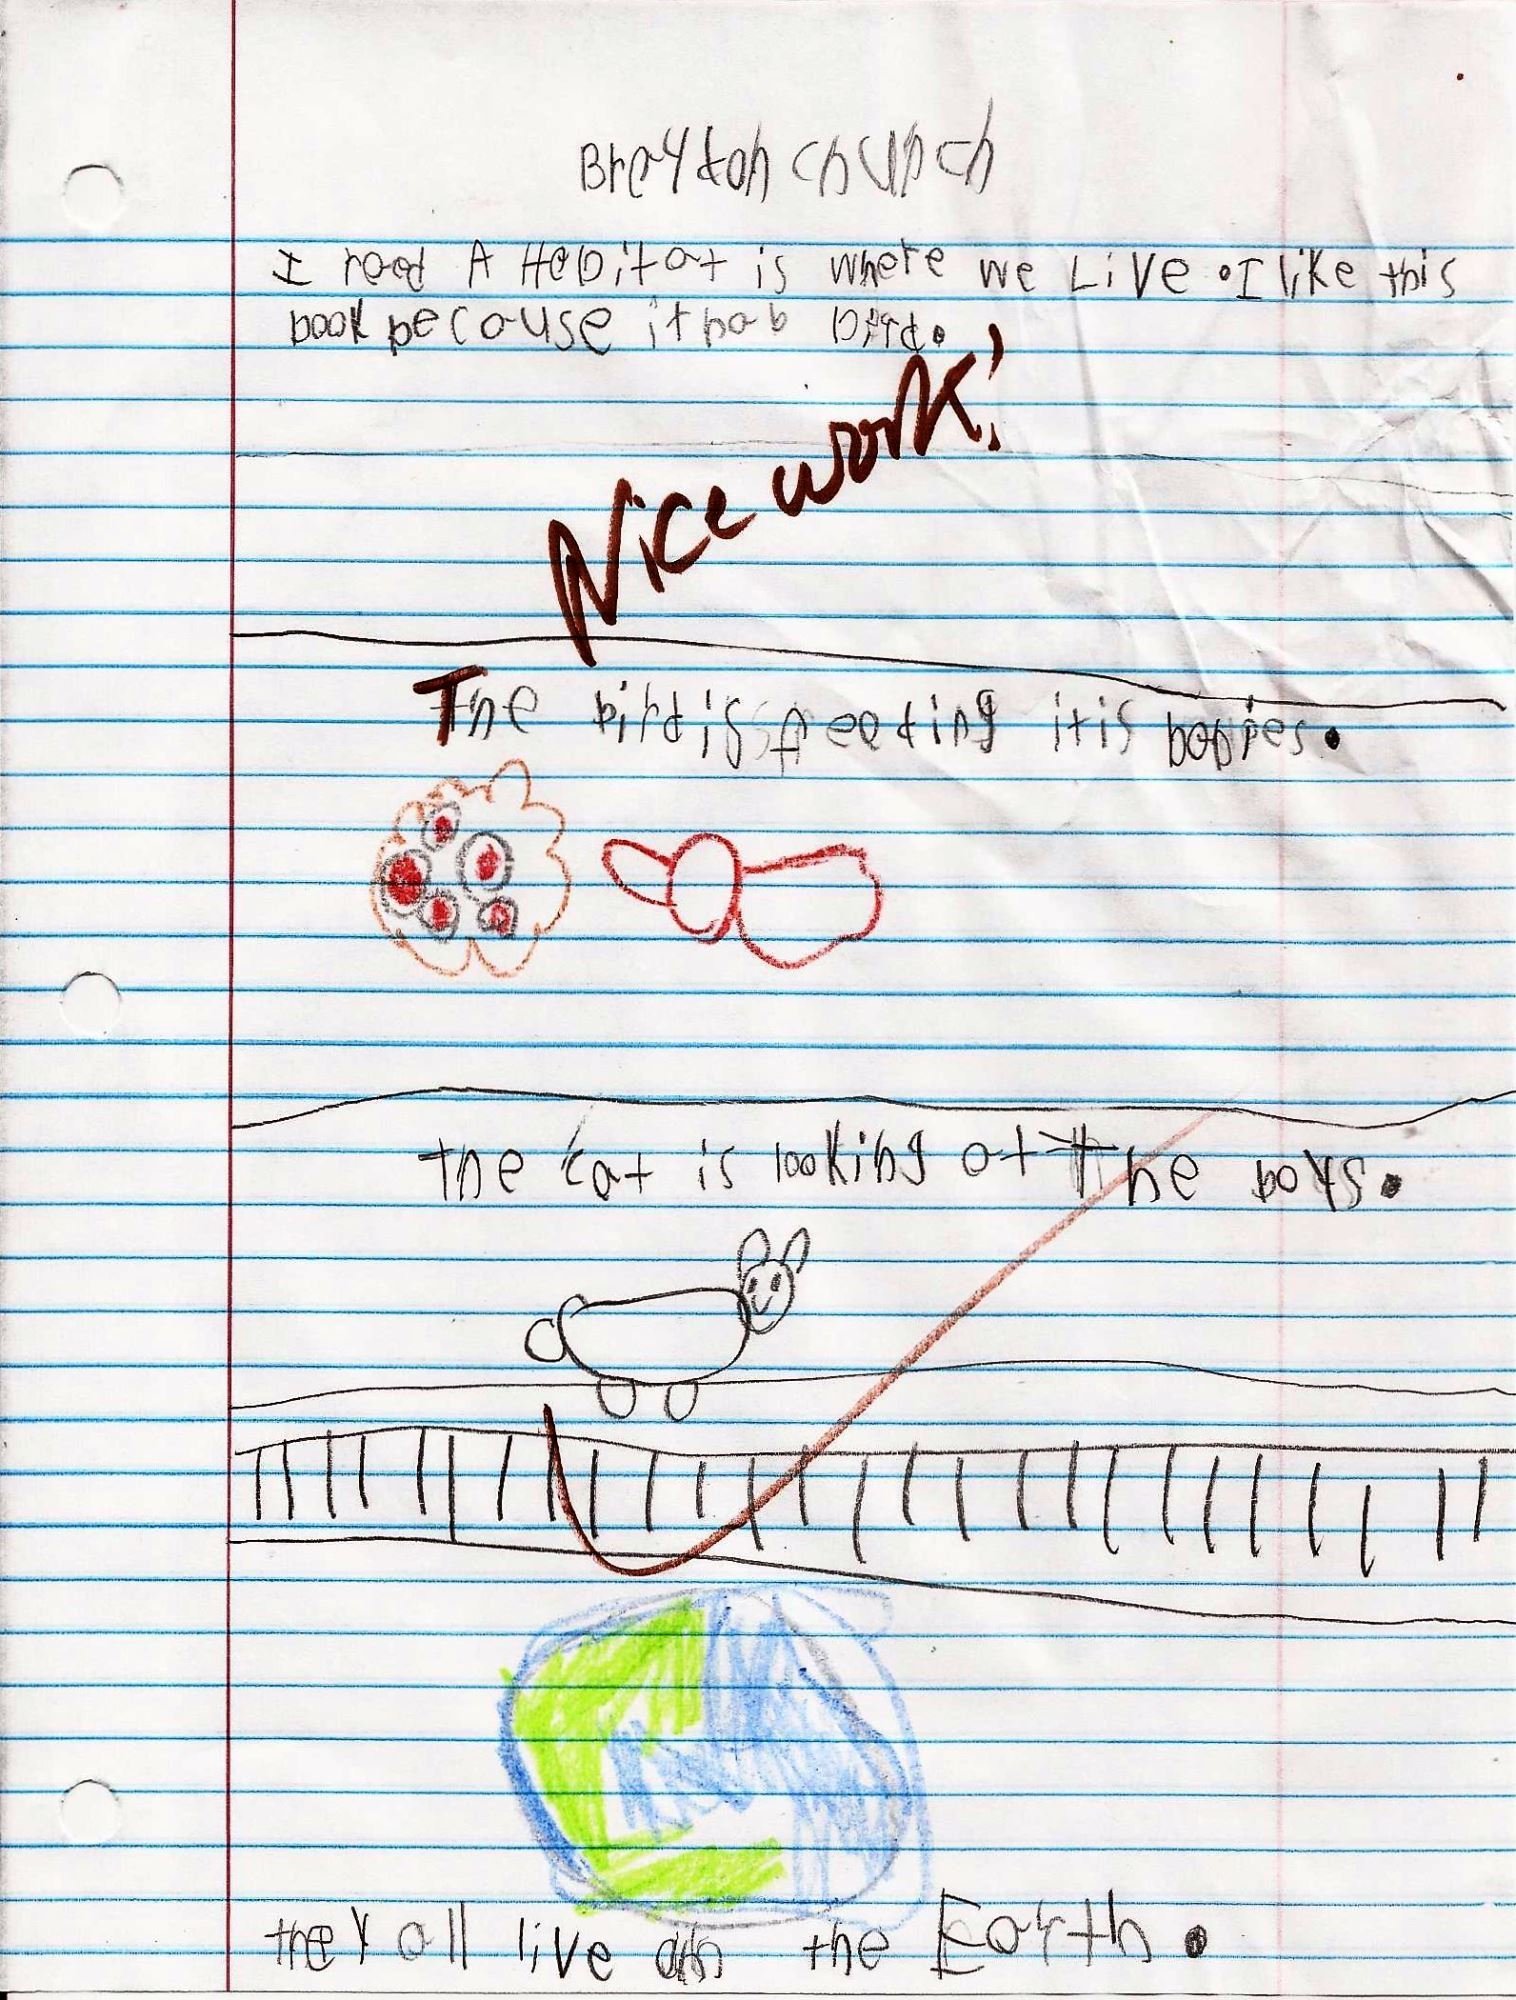 Brayton Church
I read A Habitat is where we Live. I like this
book because it had bird.
Nice work!
The bird is feeding it is babies.
the cat is looking at the boys.
they all live on the Earth.